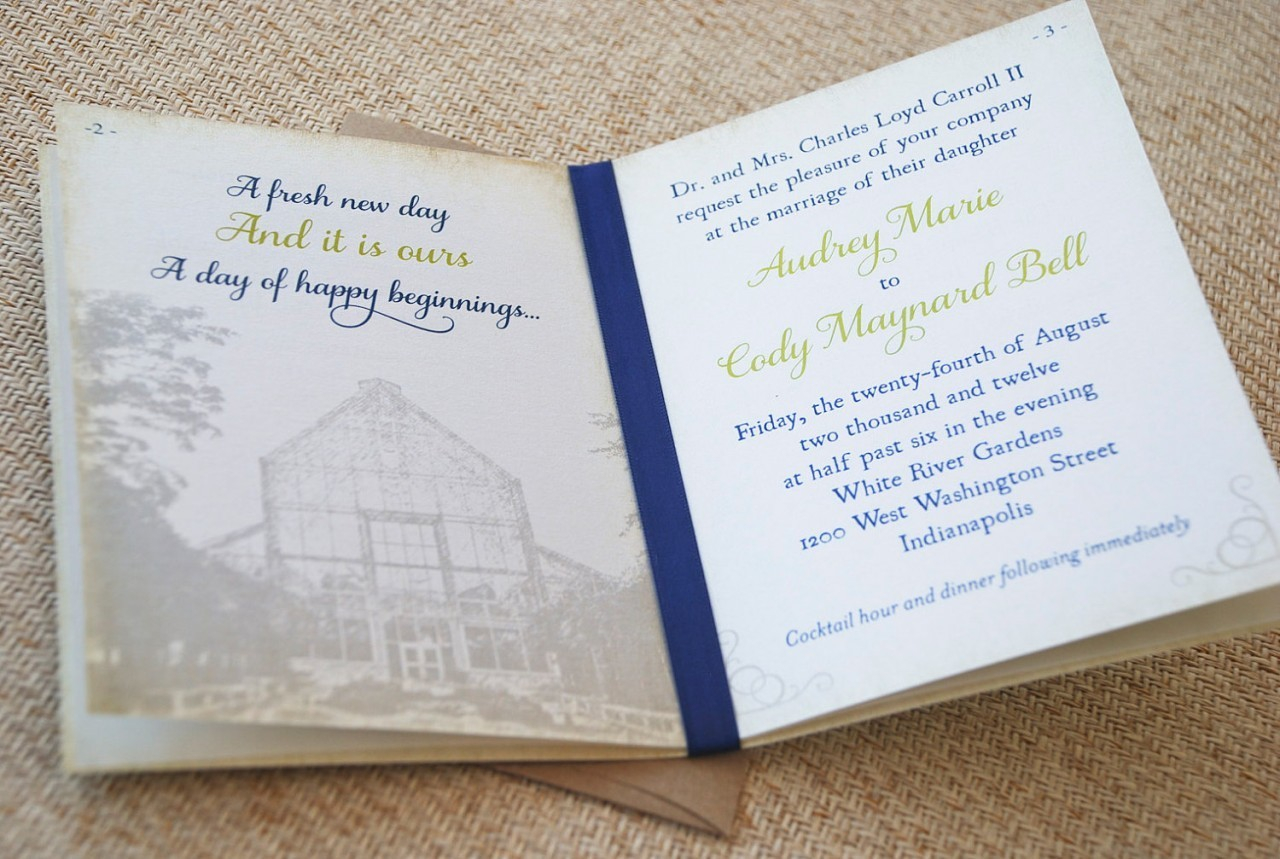 -2-
A fresh new day
And it is ours
A day of happy beginnings...
- 3 -
Dr. and Mrs. Charles Loyd Carroll II
request the pleasure of your company
at the marriage of their daughter
Audrey Marie
to
Cody Maynard Bell
Friday, the twenty-fourth of August
two thousand and twelve
at half past six in the evening
White River Gardens
1200 West Washington Street
Indianapolis
Cocktail hour and dinner following immediately